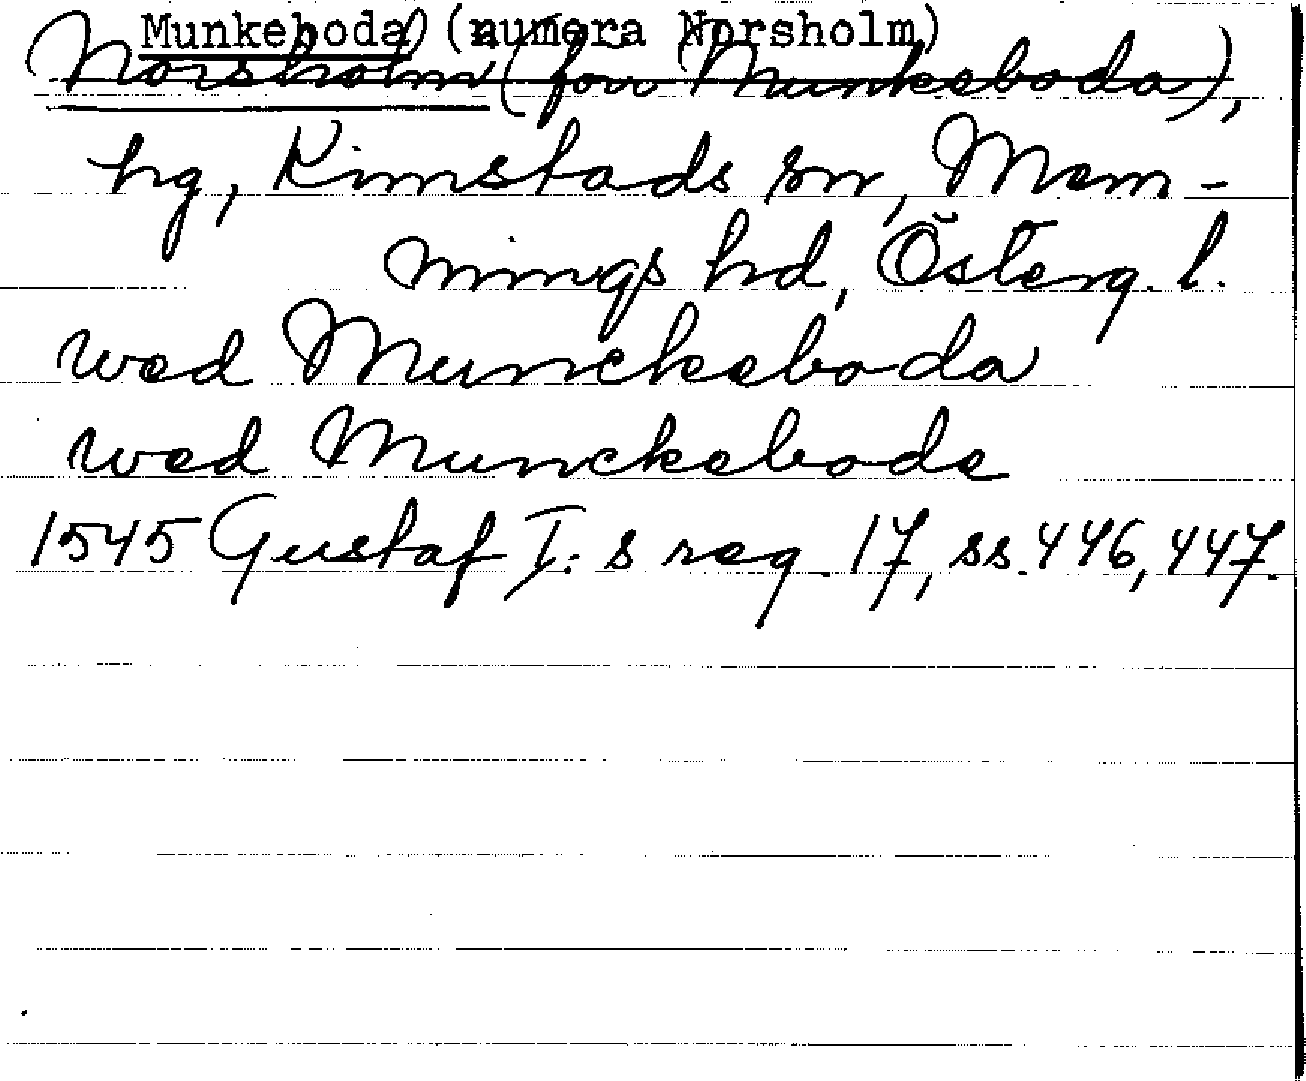 Munkeboda (numera Norsholm)
Norsholm (förr Munkeboda),
hg, Kimstads sn, Mem-
mings hd, Österg. l.
wed Munckeboda
wed Munckebode
1545 Gustaf I:s reg. 17, ss. 446, 447.